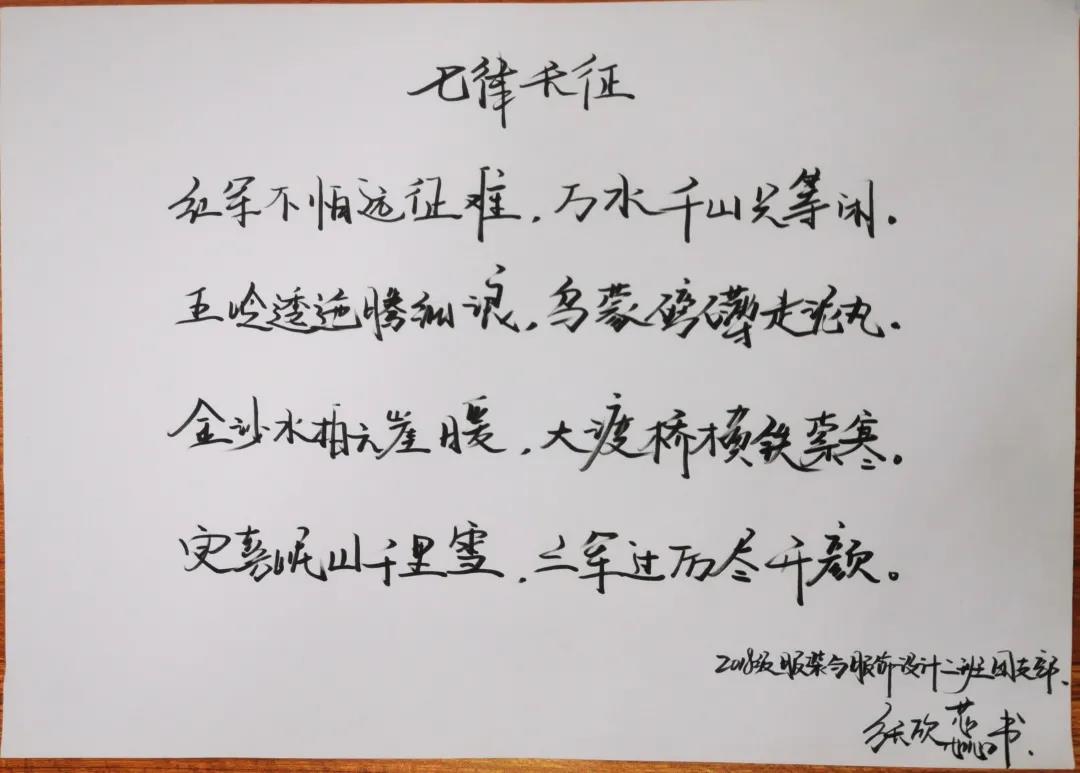 七律长征
红军不怕远征难,万水千山只等闲。
五岭逶迤腾细浪,乌蒙磅礴走泥丸。
金沙水拍云崖暖,大渡桥横铁索寒。
更喜岷山千里雪,三军过后尽开颜。
2018级服装与服饰设计二班团支部.
书.